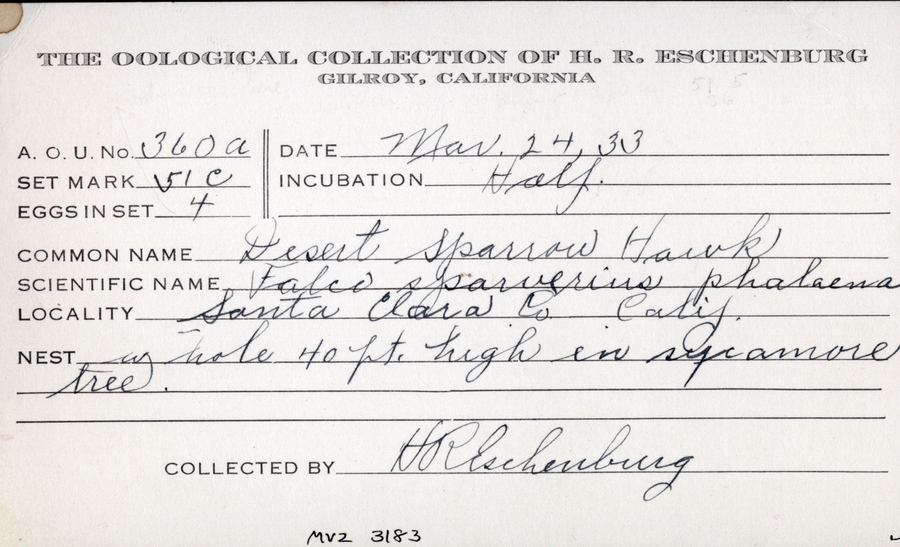 THE OOLOGICAL COLLECTION OF H. R. ESCHENBURG
GILROY, CALIFORNIA
A. O. U. No. 360a DATE Mar. 24, 33
SET MARK 51 C INCUBATION Half.
EGGS IN SET 4
COMMON NAME Desert Sparrow Hawk
SCIENTIFIC NAME Falco sparverius phalaena
LOCALITY Santa Clara Co Calif.
NEST hole 40 ft. high in sycamore
tree.
COLLECTED BY HREschenburg
MVZ 3183